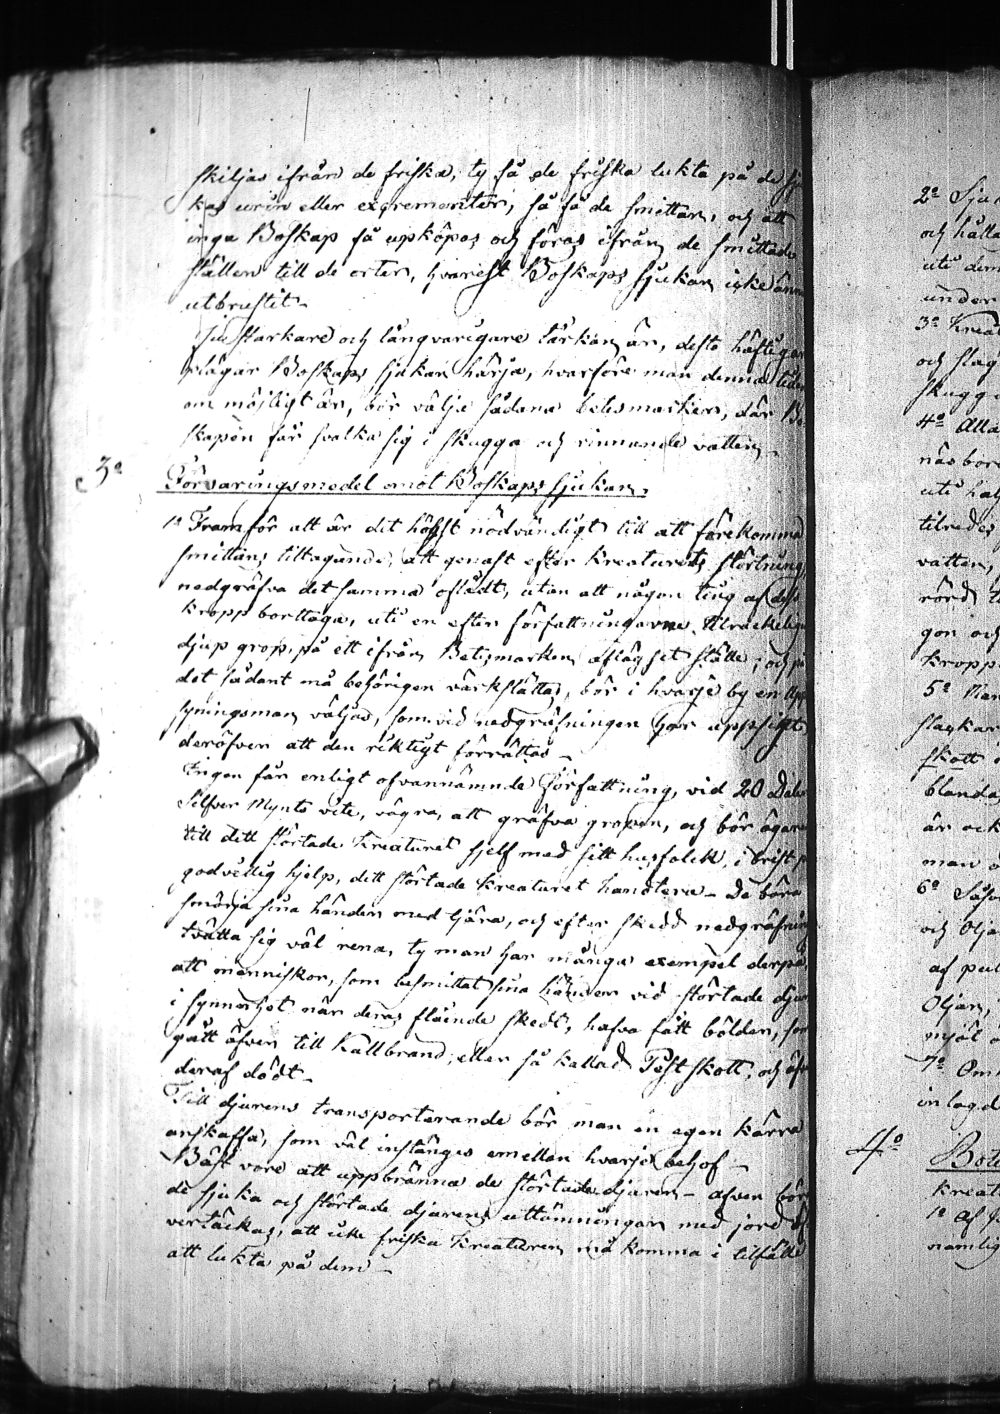 skiljas ifrån de friska, ty få de friska lukta på de sju
kas urin eller excrementer, så få de smittan, och att
inga Boskap få upköpas och föras ifrån de smittade
ställen till de orter, hvarest Boskaps sjukan icke ännu
utbrustit.
Ju starkare och långvarigare tårkan är, desto häftigare
plägar Boskaps sjukan härja, hvarföre man denna tiden
om möjligt är, bör välja sådana betesmarker, där Bo
skapen får svalka sig i skugga och rinnande vatten.
3o Förvaringsmedel emot Boskaps sjukan.
1o Framför allt är det högst nödvändigt till att förekomma
smittans tilltagande, att genast efter Kreaturets störtning
nedgräfva det samma oflådt, utan att någon ting af dess
kropp borttaga, uti en efter författningarne tilräckelig
djup grop, på ett ifrån Betesmarken aflägset ställe; och på
det sådant må behörigen värkställas, bör i hvarje by en upp
syningsman väljas, som vid nedgräfningen har uppsigt
deröfver att den riktigt förrättas
Ingen får enligt ofvannämnde författning, vid 20 Daler
Silfver Mynts vite, vägra, att gräfva gropen, och bör ägaren
till dett störtade Kreaturet sjelf med sitt husfolck, i brist på
godvillig hjelp, dett störtade Kreaturet handtera – De böra
smörja sina händer med tjära, och efter skedd nedgräfning
tvätta sig väl rena, ty man har många exempel derpå,
att menniskor, som besmittat sina händer vid störtade djur
i synnerhet när deras flående skedt, hafva fått bölder, som
gått äfven till Kallbrand, eller så kallad Pestskott, och äfven
deraf dödt –
Till djurens transporterande bör man en egen kärra
anskaffa, som väl instänges emellan hvarje behof –
Bäst vore att uppbränna de störtade djuren – äfven bör
de sjuka och störtade djurens uttömningar med jord öf
vertäckas, att icke friska Kreaturen må komma i tilfälle
att lukta på dem –
2o Sju
och hålla
uti dem
under
3o Krea
och slag
skugg
4o Alla
näs bor
uti hal
tilredes
vatten,
rörd t
gon och
Kropp
5o
skott
blanda
är ock
man
6o
och Olja
af pul
Oljan,
mjöl
7o Om
in lagd
4o Bote
Kreat
1o af
namlig